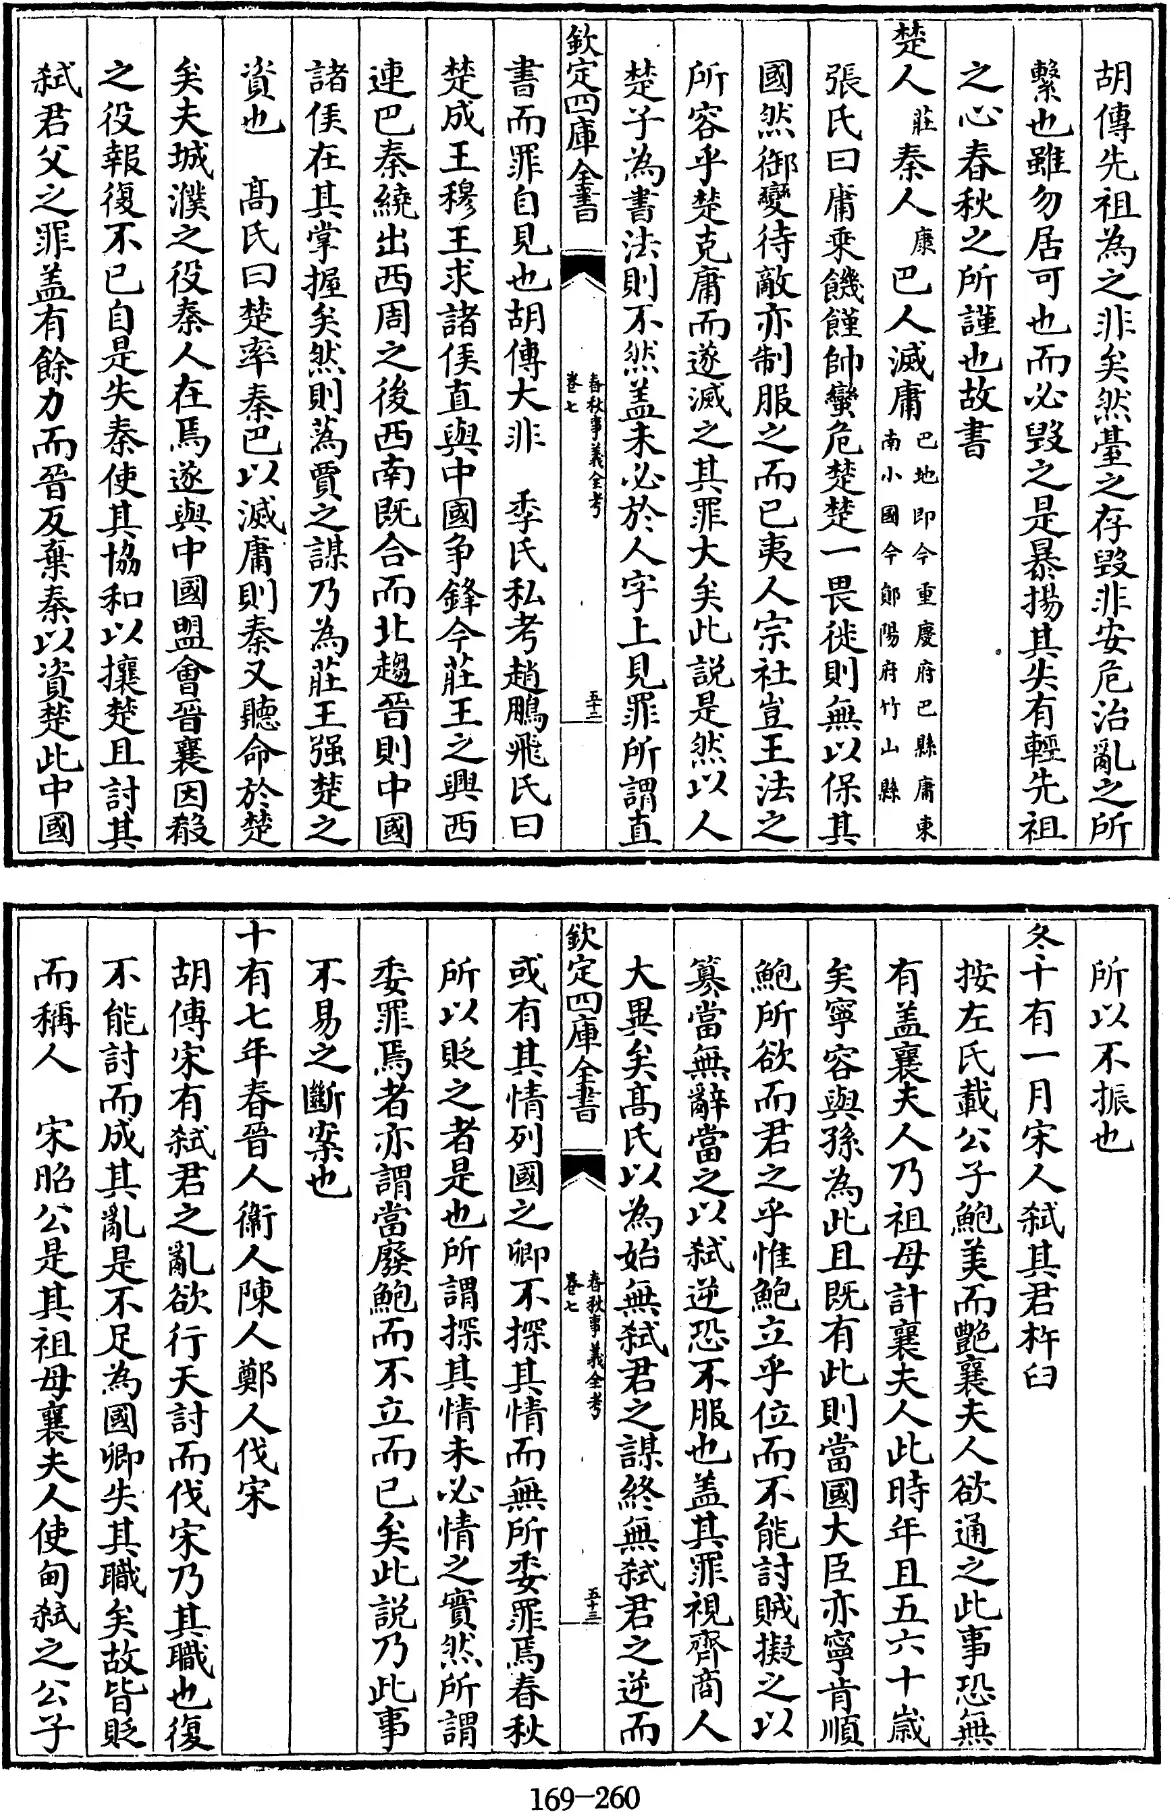 胡傳先祖為之非矣然臺之存毀非安危治亂之所
繫也雖勿居可也而必毀之是暴揚其失有輕先祖
之心春秋之所謹也故書
楚人莊秦人康巴人滅庸巴地即今重慶府巴縣庸東南小國今鄖陽府竹山縣
張氏曰庸乘饑饉帥蠻危楚楚一畏徙則無以保其
國然御變待敵亦制服之而已夷人宗社豈王法之
所容乎楚克庸而遂滅之其罪大矣此說是然以人
楚子為書法則不然盖未必於人字上見罪所謂直
欽定四庫全書
春秋事義全考
卷七
五十二
書而罪自見也胡傳大非 季氏私考趙鵬飛氏曰
楚成王穆王求諸侯直與中國争鋒今莊王之興西
連巴秦繞出西周之後西南既合而北趨晉則中國
諸侯在其掌握矣然則蒍賈之謀乃為莊王强楚之
資也 髙氏曰楚率秦巴以滅庸則秦又聽命於楚
矣夫城濮之役秦人在焉遂與中國盟會晉襄因殽
之役報復不已自是失秦使其協和以攘楚且討其
弑君父之罪盖有餘力而晉反棄秦以資楚此中國
所以不振也
冬十有一月宋人弑其君杵臼
按左氏載公子鮑美而艷襄夫人欲通之此事恐無
有盖襄夫人乃祖母計襄夫人此時年且五六十歲
矣寧容與孫為此且既有此則當國大臣亦寧肯順
鮑所欲而君之乎惟鮑立乎位而不能討賊擬之以
簒當無辭當之以弑逆恐不服也盖其罪視齊商人
大異矣髙氏以為始無弑君之謀終無弑君之逆而
欽定四庫全書
春秋事義全考
卷七
五十三
或有其情列國之卿不探其情而無所委罪焉春秋
所以貶之者是也所謂探其情未必情之實然所謂
委罪焉者亦謂當廢鮑而不立而已矣此說乃此事
不易之斷案也
十有七年春晉人衛人陳人鄭人伐宋
胡傳宋有弑君之亂欲行天討而伐宋乃其職也復
不能討而成其亂是不足為國卿失其職矣故皆貶
而稱人 宋昭公是其祖母襄夫人使甸弑之公子
169-260